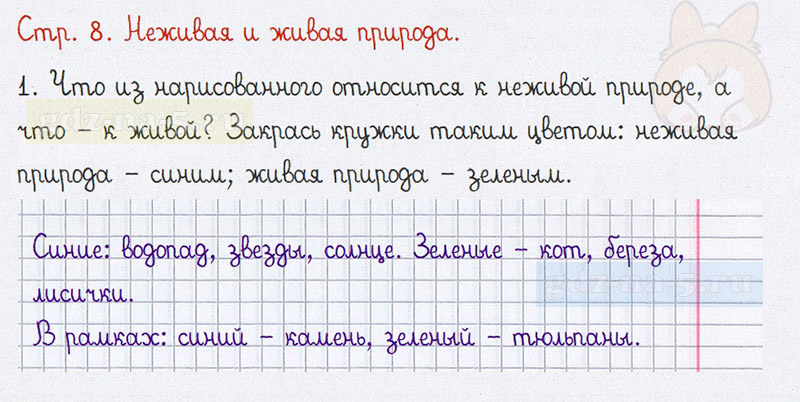 Стр. 8. Неживая и живая природа.
1. Что из нарисованного относится к неживой природе, а
что – к живой? Закрась кружки таким цветом: неживая
природа – синим; живая природа – зеленым.
Синие: водопад, звезды, солнце. Зеленые – кот, береза,
лисички.
В рамках: синий – камень, зеленый – тюльпаны.